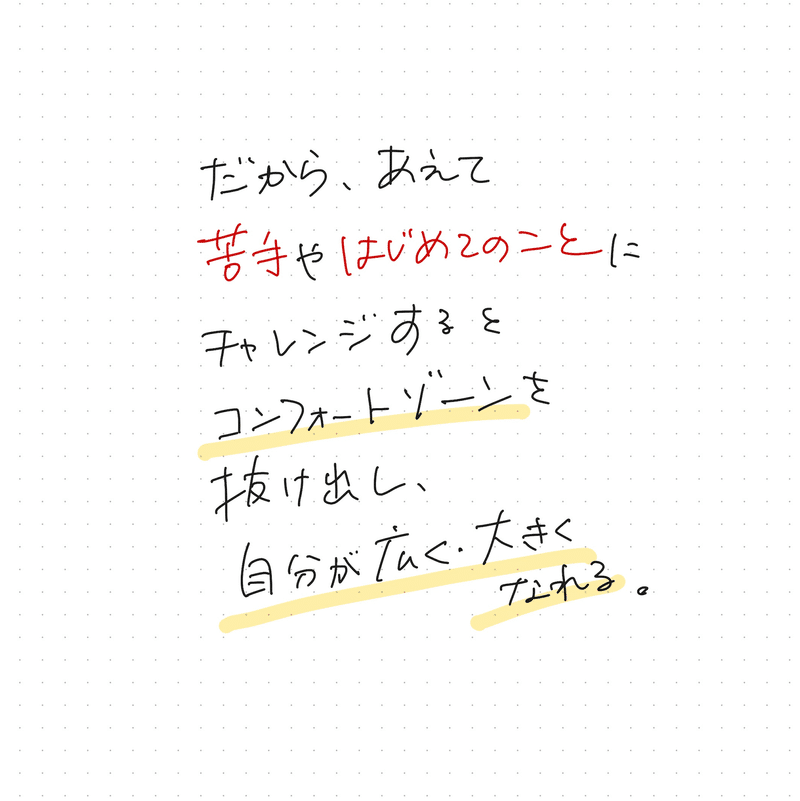 だから、あえて
苦手やはじめてのことに
チャレンジすると
コンフォートゾーンを
抜け出し、
自分が広く・大きく
なれる。